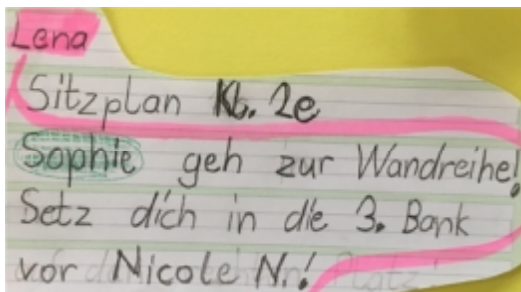 Lena
Sitzplan Kl. 2e
Sophie geh zur Wandreihe!
Setz dich in die 3. Bank
vor Nicole N.!